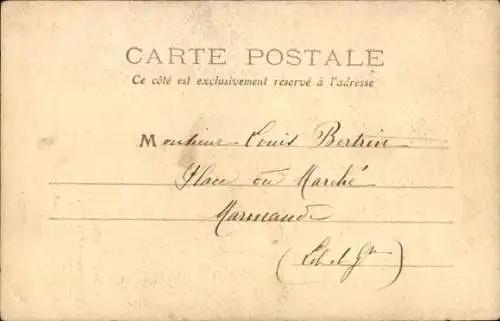 CARTE POSTALE
Ce côté est exclusivement réservé à l'adresse
Monsieur Louis Bertrin
Place du Marché
Marmande
(Lot et Gne)